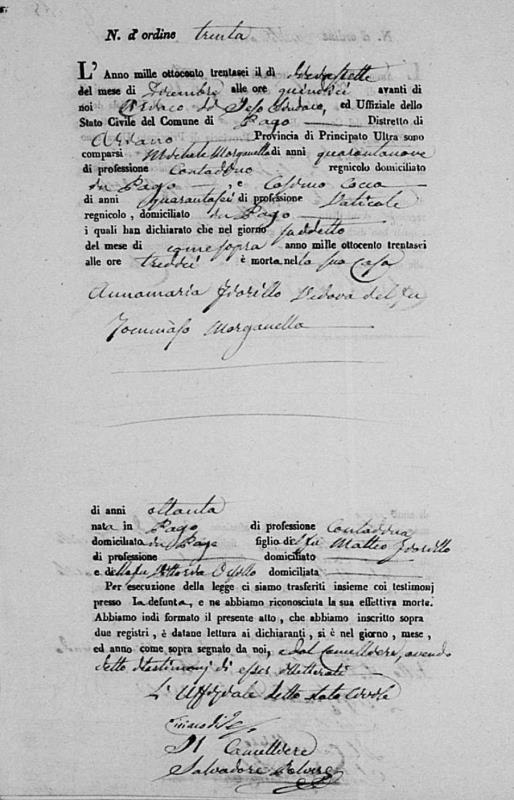 N. d'ordine trenta
L' Anno mille ottocento trentasei il dì diciassette
del mese di Decembre alle ore quindici avanti di
noi ed Uffiziale dello
Stato Civile del Comune di Pago Distretto di
Ariano Provincia di Principato Ultra sono
comparsi Michele Morganella di anni quarantanove
di professione Contadino regnicolo domiciliato
in Pago e Cosimo Cocca
di anni quarantasei di professione Vaticale
regnicolo, domiciliato in Pago
i quali han dichiarato che nel giorno suddetto
del mese di come sopra anno mille ottocento trentasei
alle ore tredici è morta nella sua Casa
Annamaria Fiorillo Vedova del fu
Tommaso Morganella
di anni ottanta
nata in Pago di professione Contadina
domiciliata in Pago figlio di fu Matteo Fiorillo
di professione domiciliato
e della fu domiciliata
Per esecuzione della legge ci siamo trasferiti insieme coi testimonj
presso la defunta, e ne abbiamo riconosciuta la sua effettiva morte.
Abbiamo indi formato il presente atto, che abbiamo inscritto sopra
due registri, è datane lettura ai dichiaranti, si è nel giorno, mese,
ed anno come sopra segnato da noi, e dal Cancelliere, avendo
detto i testimonj di esser illetterati
L' Uffiziale dello stato Civile
Il Cancelliere
Salvadore